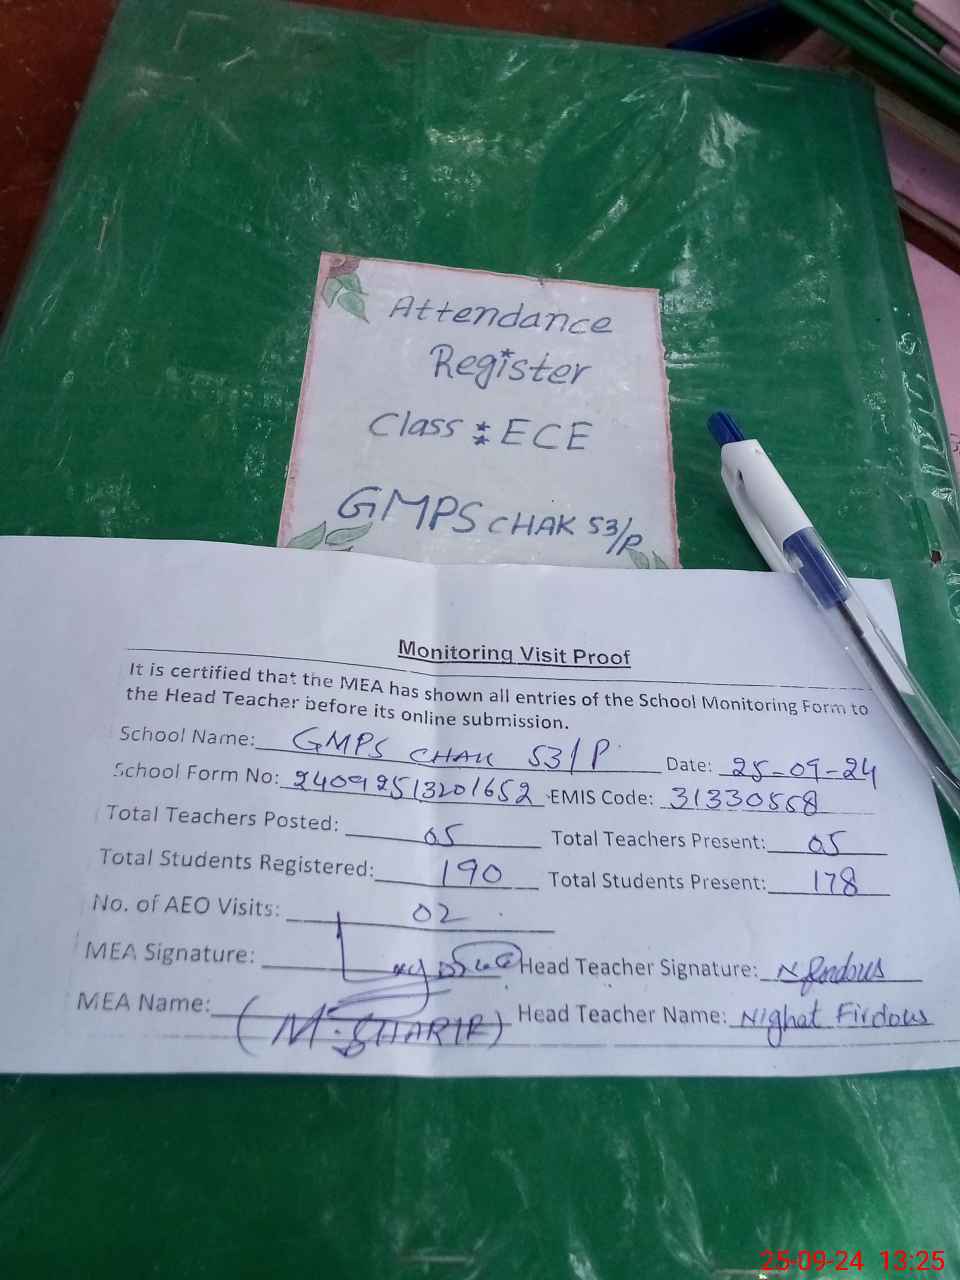 Attendance
Register
Class : ECE
GMPS CHAK 53/P
Monitoring Visit Proof
It is certified that the MEA has shown all entries of the School Monitoring Form to
the Head Teacher before its online submission.
School Name: GMPS CHAK 53/P Date: 25-09-24
School Form No: 24092513201652 EMIS Code: 31330558
Total Teachers Posted: 05 Total Teachers Present: 05
Total Students Registered: 190 Total Students Present: 178
No. of AEO Visits: 02
MEA Signature: Head Teacher Signature: N Firdous
MEA Name: (M. SHARIF) Head Teacher Name: Nighat Firdous
25-09-24 13:25